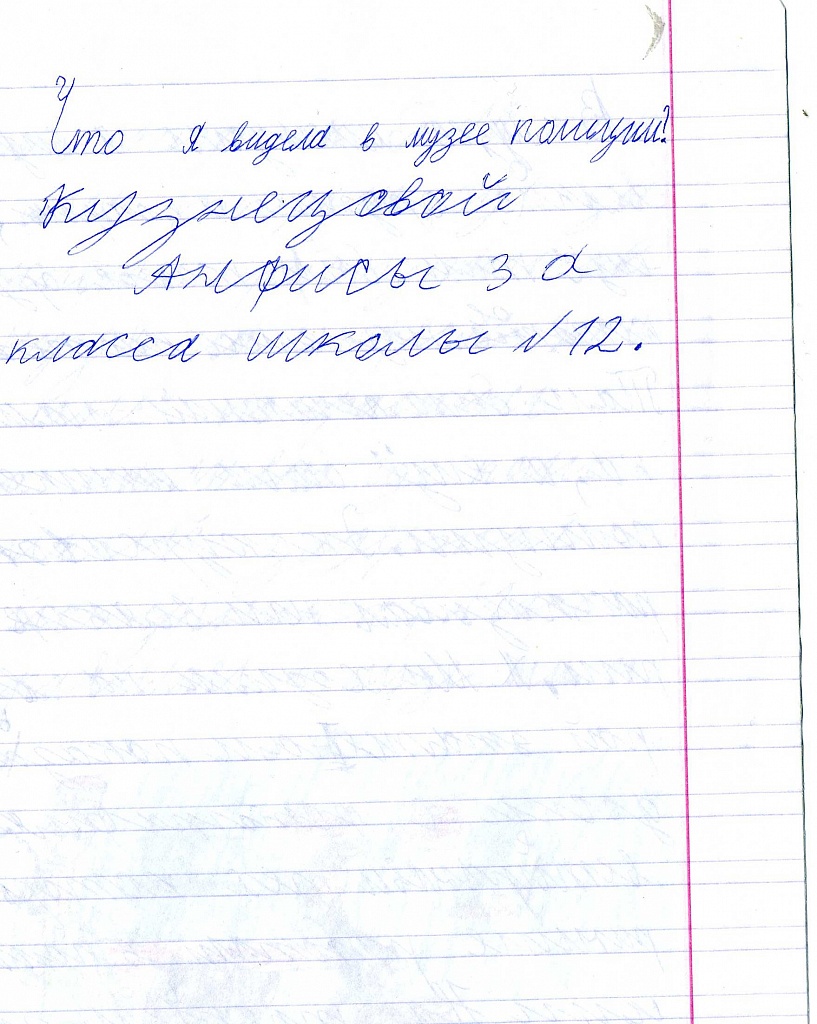 Что я видела в музее полиции?
Кузнецовой
Анфисы 3 а
класса школы №12.